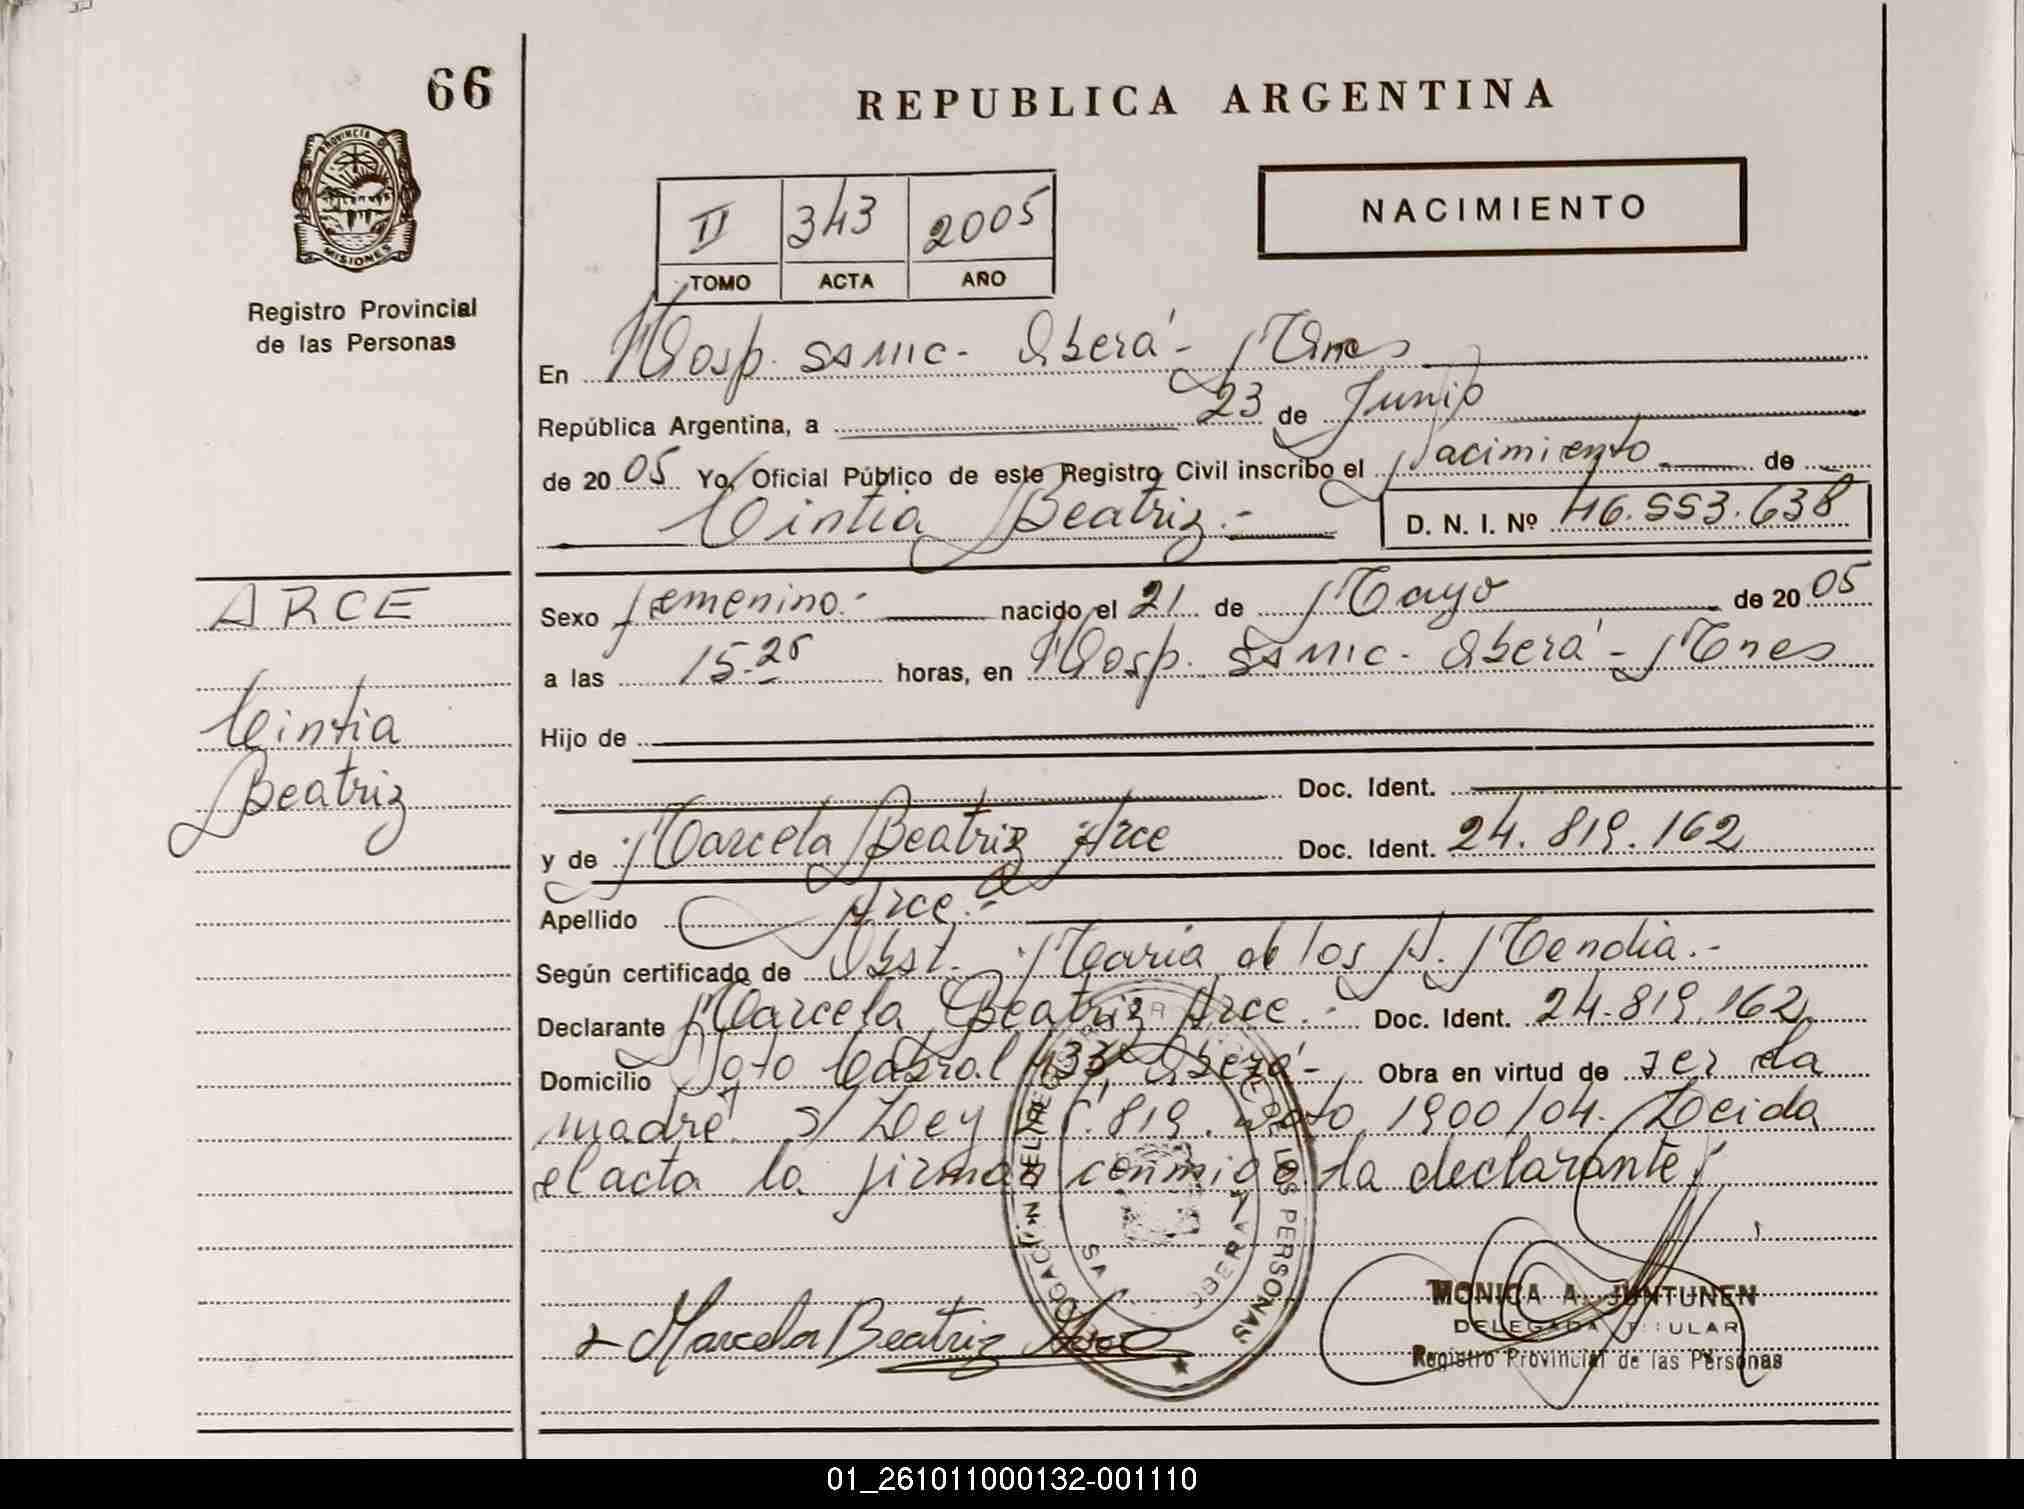 66
REPUBLICA ARGENTINA
PROVINCIA DE
MISIONES
Registro Provincial
de las Personas
II 343 2005
TOMO ACTA AÑO
NACIMIENTO
En Hosp. SSMIC - Oberá - Mnes
República Argentina, a 23 de Junio
de 20 05 Yo, Oficial Público de este Registro Civil inscribo el Nacimiento de
Cintia Beatriz.-
D. N. I. Nº 46.553.638
ARCE
Cintia
Beatriz
Sexo femenino.- nacido el 21 de Mayo de 20 05
a las 15.25 horas, en Hosp. SSMIC - Oberá - Mnes
Hijo de
Doc. Ident.
y de Marcela Beatriz Arce Doc. Ident. 24.819.162
Apellido Arce.-
Según certificado de Obst. Maria de los A. Mendia.-
Declarante Marcela Beatriz Arce.- Doc. Ident. 24.819.162
Domicilio Sgto Cabral 433 Oberá - Obra en virtud de ser la
madre s/ Ley .819. Dto 1900/04. Leida
el acta la firman conmigo la declarante
Marcela Beatriz Arce
DE LAS PERSONAS
OBERA
MONICA A. JUNTUNEN
DELEGADA TITULAR
Registro Provincial de las Personas
01_261011000132-001110